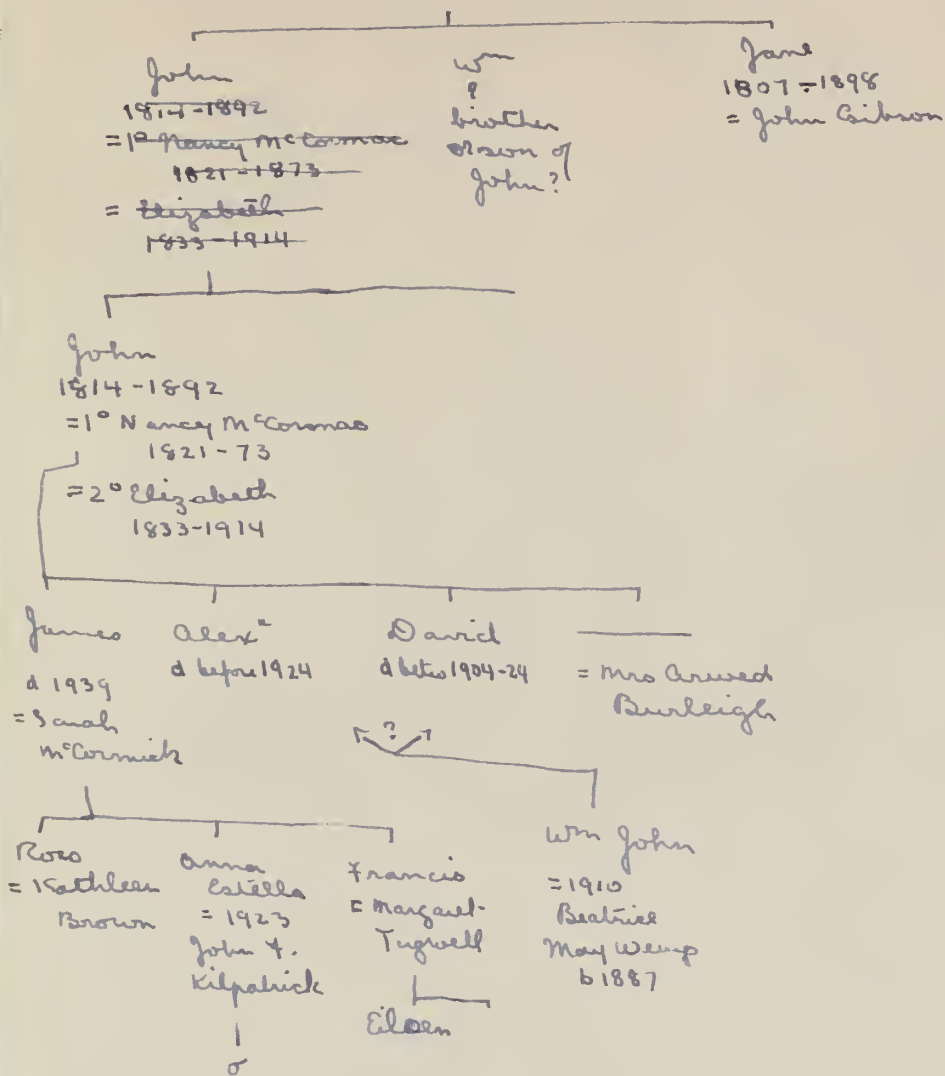 John
1814-1892
=1º Nancy McCormac
1821-1873
= Elizabeth
1833-1914
Wm
?
brother
or son of
John?
Jane
1807-1898
= John Gibson
John
1814-1892
=1º Nancy McCormac
1821-73
=2º Elizabeth
1833-1914
James
d 1939
= Sarah
McCormick
Alexr
d before 1924
David
d betw 1904-24
= Mrs
Burleigh
?
Ross
= Kathleen
Brown
Anna
Estella
= 1923
John F.
Kilpatrick
Francis
= Margaret
Tugwell
Eileen
Wm John
=1910
Beatrice
May Wemp
b 1887